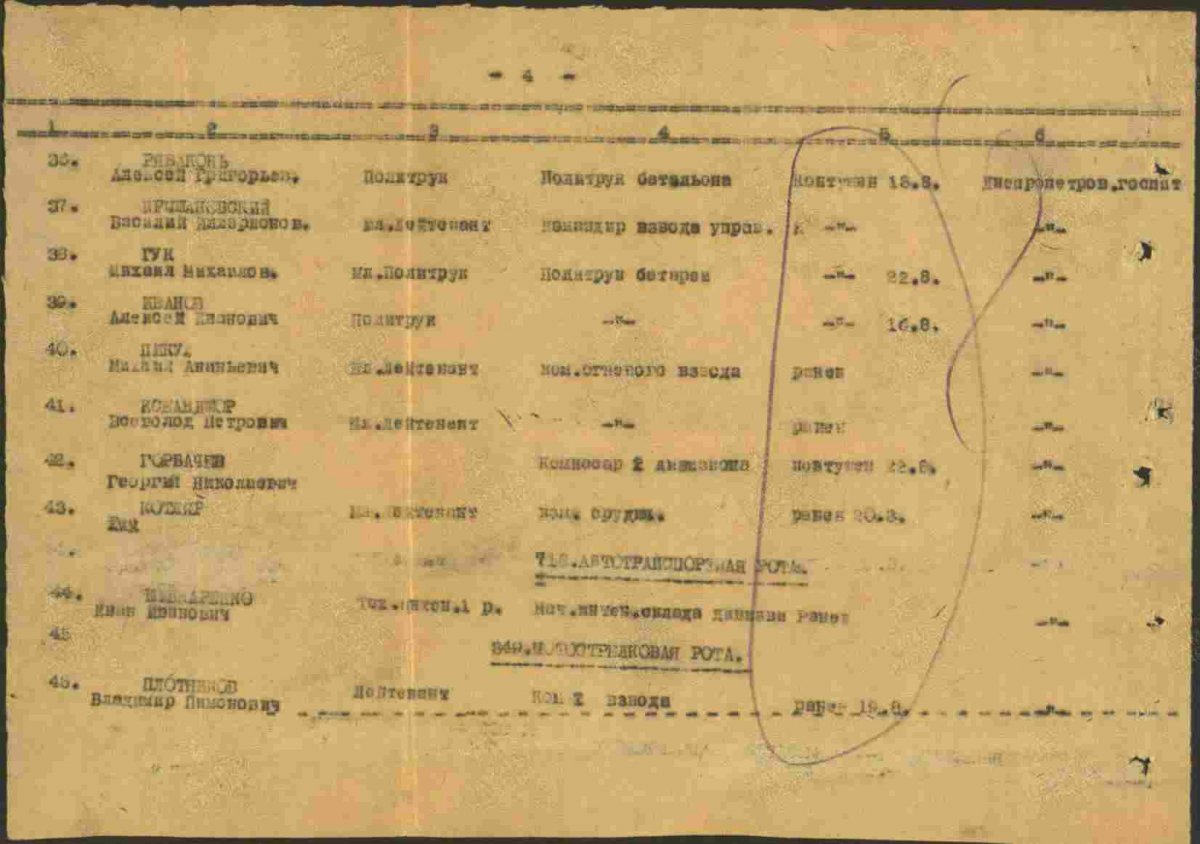 - 4 -
1 2 3 4 5 6
36. РЯБОКОНЬ
Алексей Григорьев. Политрук Политрук батальона контужен 18.8. Днепропетров.госпит
37.
Василий Иларионов. мл.лейтенант командир взвода управ. -"- -"-
38. ГУК
Михаил Михайлов. мл.Политрук Политрук батареи -"- 22.8. -"-
39. ИВАНОВ
Алексей Иванович Политрук -"- -"- 16.8. -"-
40.
Михаил Ананьевич мл.лейтенант ком.огневого взвода ранен -"-
41.
Всеволод Петрович мл.лейтенант -"- ранен -"-
42. ГОРБАЧЕВ Комиссар 2 дивизиона контужен 22.8. -"-
Георгий Николаевич
43. КОТЛЯР мл.лейтенант ком. орудия. ранен 20.8. -"-
718.АВТОТРАНСПОРТНАЯ РОТА.
44.
Иван Иванович Тех.интен.1 р. Нач.интен.склада дивизии Ранен -"-
45
349.МОТОСТРЕЛКОВАЯ РОТА.
46. ПЛОТНИКОВ
Владимир Пимонович Лейтенант Ком 2 взвода ранен 19.8. -"-